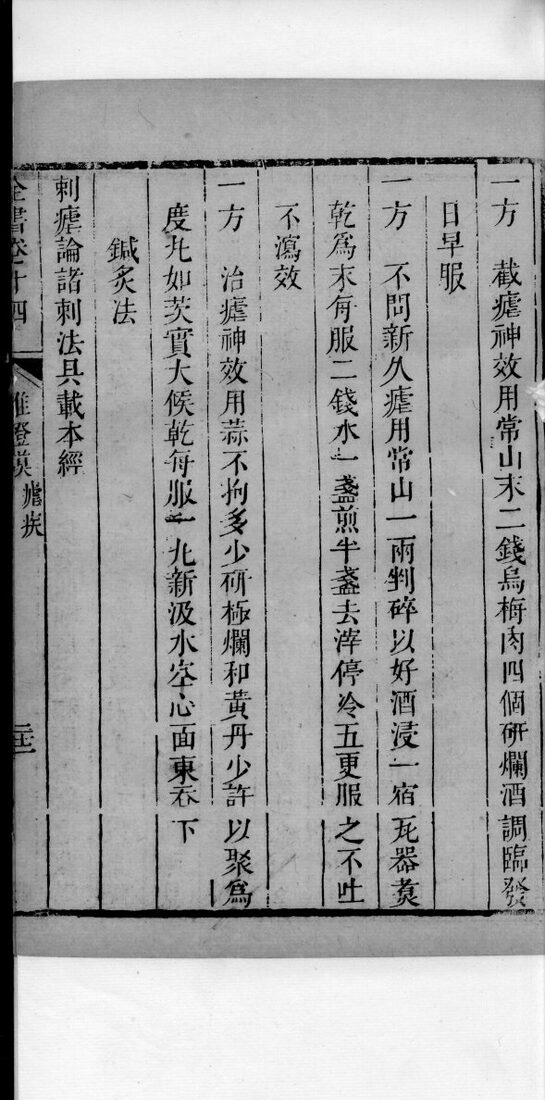 一方　截瘧神效用常山末二錢烏梅肉四個研爛酒調臨發
日早服
一方　不問新久瘧用常山一兩剉碎以好酒浸一宿瓦器煑
乾爲末每服二錢水一盞煎半盞去滓停冷五更服之不吐
不瀉效
一方　治瘧神效用蒜不拘多少研極爛和黃丹少許以聚爲
度丸如芡實大候乾每服一丸新汲水空心面東呑下
鍼灸法
刺瘧論諸刺法具載本經
全書卷之十四　雜證謨　瘧疾